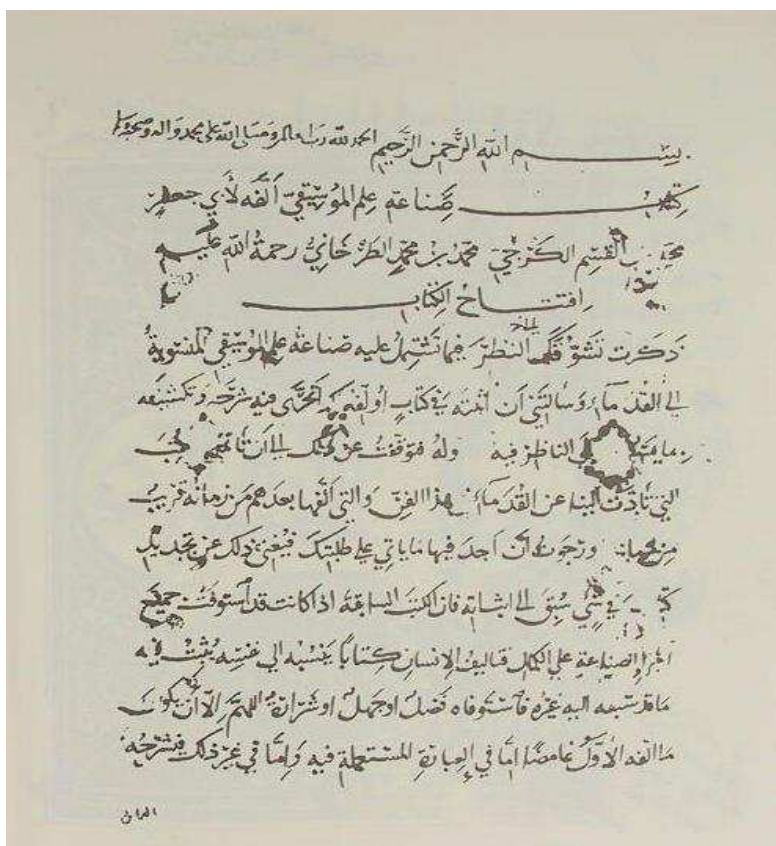 بسم الله الرحمن الرحيم الحمد لله رب العالمين وصلى الله على محمد واله وصحبه
كتاب صناعة علم الموسيقى ألفه لأبي جعفر
محمد بن القسم الكرخي محمد بن محمد الطرخاني رحمة الله عليهم
افتتاح الكتاب
ذكرت تشوقك النظر فيما تشتمل عليه صناعة علم الموسيقي المنسوبة
الي القدماء وسألتني أن أثبته في كتاب أولفه لك أتحرى فيه شرحه وتكشيفه
بما على الناظر فيه وله فتوقفت عن ذلك الى ان تأملت الكتب
التي تأدت الينا عن القدماء هذا الفن والتي ألفها بعدهم من زمانه قريب
من زماننا ورجوت أن أجد فيها ما ياتي علي طلبتك فيغني ذلك عن تجديد
كتاب في شي سبق الى اثباته فان الكتب السابقة اذا كانت قد استوفت جميع
أجزاء الصناعة علي الكمال فتاليف الإنسان كتابا ينسبه الي نفسه يثبت فيه
ما قد سبقه اليه غيره فاستوفاه فضل او جهل او شرارة اللهم إلا أن يكون
ما الفه الأول غامضا إما في العبارة المستعملة فيه وإما في غير ذلك فيشرحه